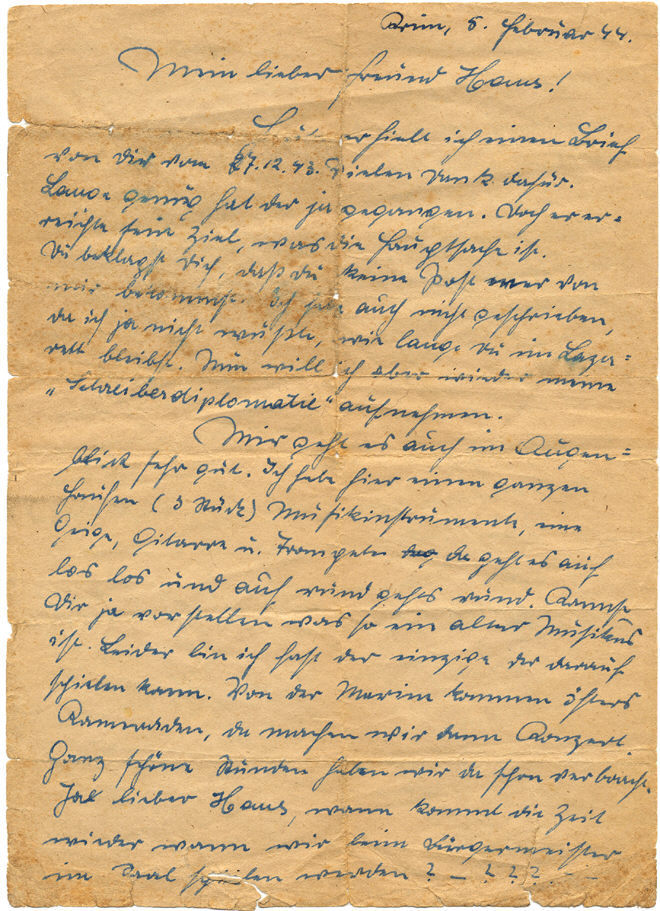 Krim, 5. Februar 44.
Mein lieber Freund Hans!
Heute erhielt ich einen Brief
von dir vom 27.12.43. Vielen Dank dafür.
Lange genug hat der ja gegangen. Doch er er=
reichte sein Ziel, was die Hauptsache ist.
Du beklagst Dich, daß du keine Post von
mir bekommst. Ich habe auch nicht geschrieben,
da ich ja nicht wußte, wie lange du im Laza=
rett bleibst. Nun will ich aber wieder meine
„Schreiberdiplomatie" aufnehmen.
Mir geht es auch im Augen=
blick sehr gut. Ich habe hier einen ganzen
Haufen (3 Stück) Musikinstrumente, eine
Geige, Gitarre u. Trompete da geht es auf
los los und auf rund gehts rund. Kannst
Dir ja vorstellen was so ein alter Musikus
ist. Leider bin ich fast der einzige der darauf
spielen kann. Von der Marine kommen öfters
Kameraden, da machen wir dann Konzert.
Ganz schöne Stunden haben wir da schon verbracht.
Ja lieber Hans, wann kommt die Zeit
wieder wann wir beim Bürgermeister
im Saal spielen werden ? – ? ? ? – –